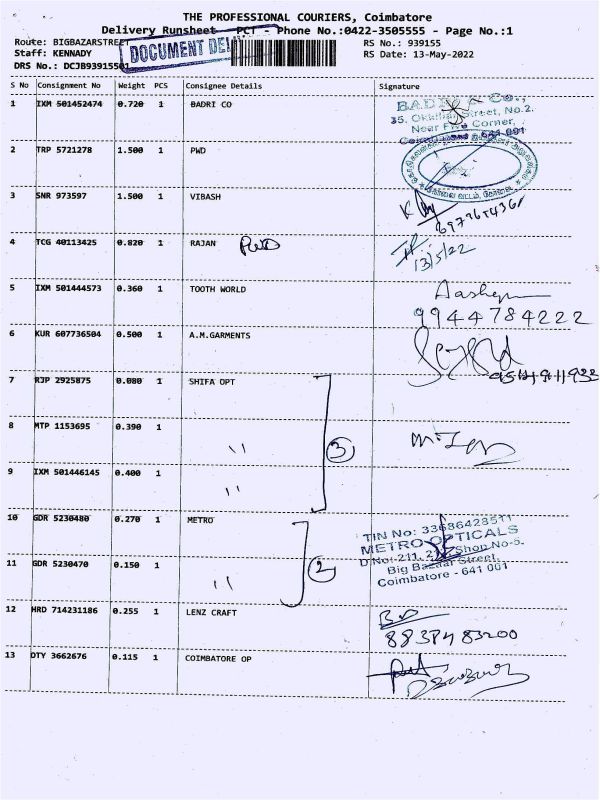 THE PROFESSIONAL COURIERS, Coimbatore
Delivery Runsheet - PCT - Phone No.:0422-3505555 - Page No.:1
Route: BIGBAZARSTREET
RS No.: 939155
Staff: KENNADY
DOCUMENT
RS Date: 13-May-2022
DRS No.: DCJB93915501
S No Consignment No Weight PCS Consignee Details Signature
1 IXM 501452474 0.720 1 BADRI CO
35, Street, No.2.
Near Five Corner,
641 001
2 TRP 5721278 1.500 1 PWD
3 SNR 973597 1.500 1 VIBASH
4 TCG 40113425 0.820 1 RAJAN PWD
13/5/22
5 IXM 501444573 0.360 1 TOOTH WORLD
9944784222
6 KUR 607736504 0.500 1 A.M.GARMENTS
7 RJP 2925875 0.080 1 SHIFA OPT
8 MTP 1153695 0.390 1 " 3
9 IXM 501446145 0.400 1 "
10 GDR 5230480 0.270 1 METRO
TIN No: 33686428511
METRO OPTICALS
Shop No-5.
Big Bazaar Street,
Coimbatore - 641 001
11 GDR 5230470 0.150 1 " 2
12 HRD 714231186 0.255 1 LENZ CRAFT
13 DTY 3662676 0.115 1 COIMBATORE OP